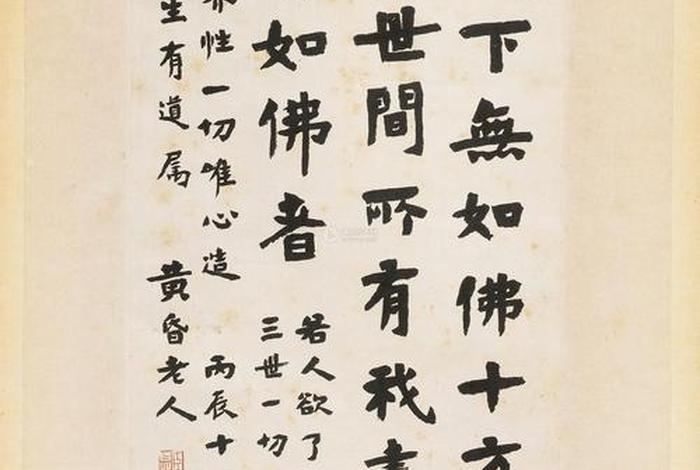 下無如佛十方
世間所有我盡
如佛者
若人欲了
三世一切
界性一切唯心造
丙辰十
生有道属
黄昏老人